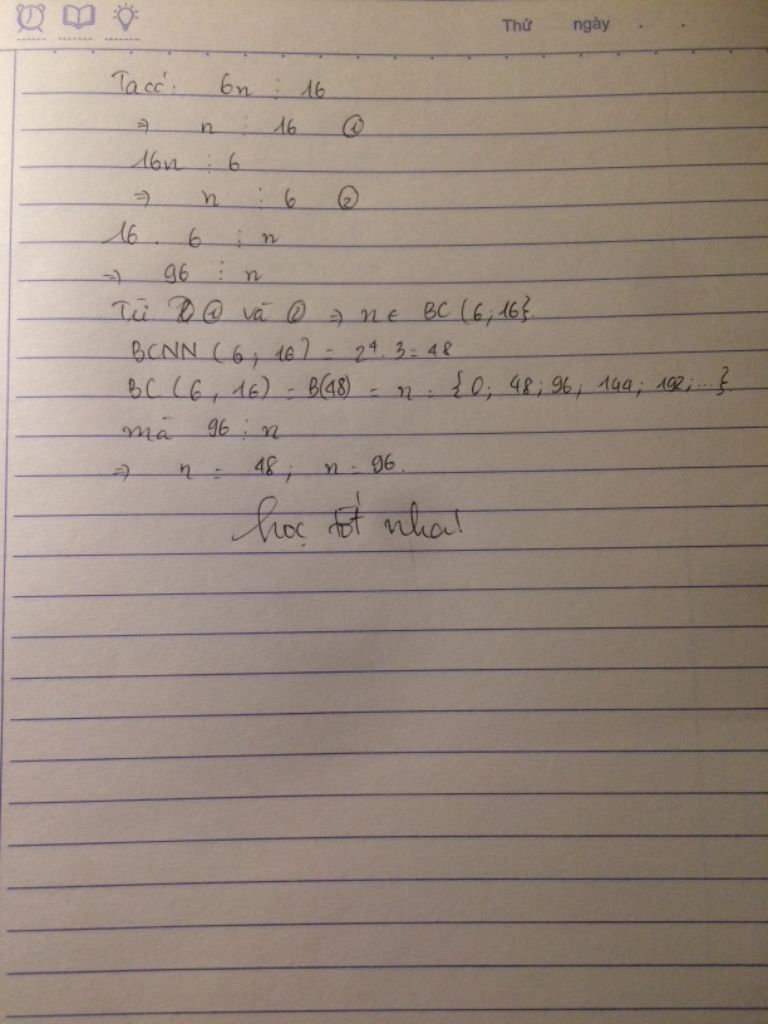 Thứ ngày . .
Ta có: 6n ⋮ 16
⇒ n ⋮ 16 ①
16n ⋮ 6
⇒ n ⋮ 6 ②
16 . 6 ⋮ n
⇒ 96 ⋮ n
Từ ① và ② ⇒ n ∈ BC (6; 16}.
BCNN (6; 16) = 2⁴. 3 = 48
BC (6, 16) = B(48) = n = {0; 48; 96; 144; 192; ...}.
mà 96 ⋮ n
⇒ n = 48; n = 96.
học tốt nha!